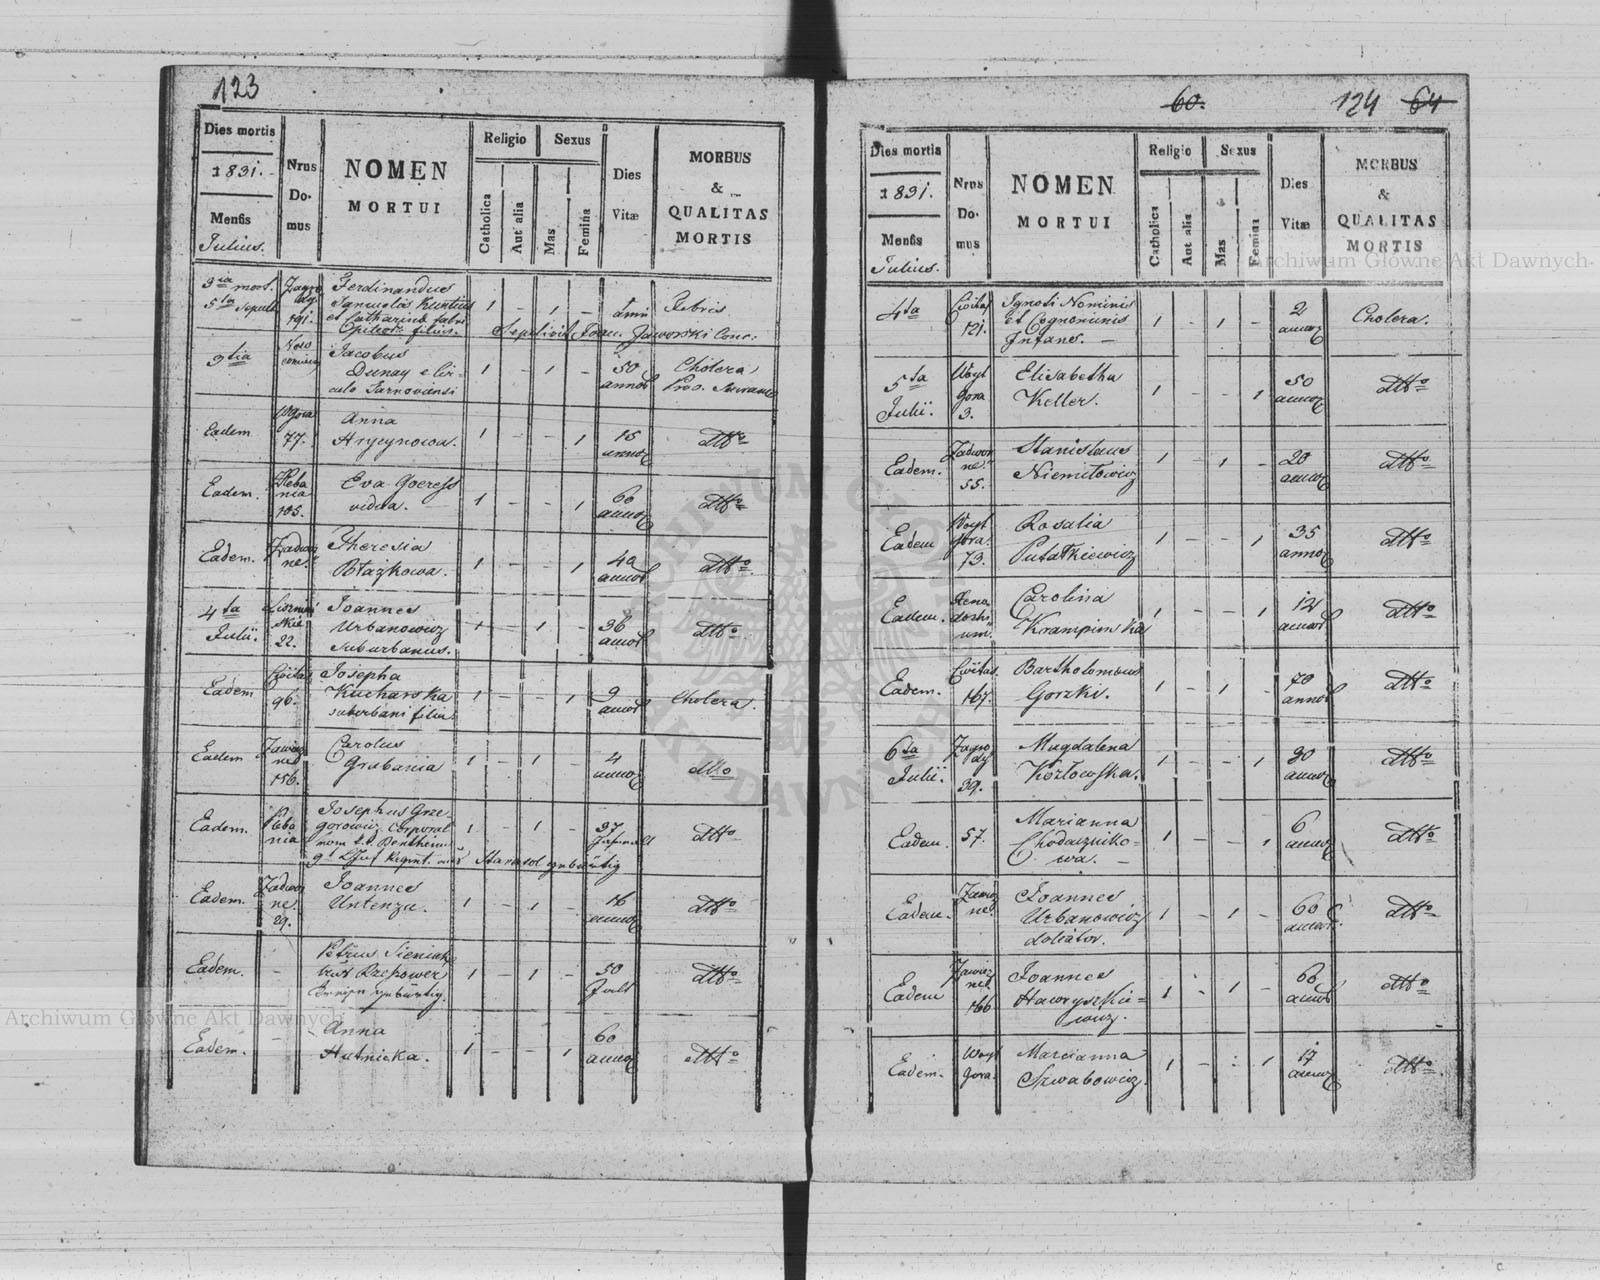 123
Dies mortis
1831.
Mensis
Julius.
Nrus
Do-
mus
NOMEN
MORTUI
Religio
Catholica
Aut alia
Sexus
Mas
Femina
Dies
Vitæ
MORBUS
&
QUALITAS
MORTIS
3tia mort.
5ta Sepult
191.
Ferdinandus
et Catharina
filius.
1 - 1 -
Febris
Sepelivit Joan. Jaworski Coop.
3tia
Jacobus
Dunay e Cir-
culo Tarnoviensi
1 - 1 -
50
annor
Cholera
Eadem
77.
Anna
Hrycynowa.
1 - - 1
15
annor
dtto
Eadem.
Pleba
nia
105.
Eva Goeress
vidua.
1 - - 1
60
annor
dtto
Eadem.
Zadwor
ne.
Theresia
Błażkowa.
1 - - 1
annor
dtto.
4ta
Julii.
22.
Joannes
Urbanowicz
suburbanus.
1 - 1 -
36
annor
dtto
Eadem
Civitas
96.
Josepha
Kucharska
suburbani filia
1 - - 1
9
annor
Cholera.
Eadem
156.
Carolus
Grabania
1 - 1 -
4
annor
dtto
Eadem.
Pleba
nia
Josephus Grze-
gorowicz Corporal
1 - 1 -
37
dtto
Starasol gebürtig
Eadem.
Zadwor
ne.
29.
Joannes
Untenzu.
1 - 1 -
16
annor
dtto
Eadem.
-
Petrus
gebürtig.
1 - 1 -
50
dtto
Eadem.
-
Anna
Hutnicka.
1 - - 1
60
annor
dtto
60.
124 64
Dies mortis
1831.
Mensis
Julius.
Nrus
Do-
mus
NOMEN
MORTUI
Religio
Catholica
Aut alia
Sexus
Mas
Femina
Dies
Vitæ
MORBUS
&
QUALITAS
MORTIS
4ta
Civitas
121.
Ignoti Nominis
et Cognominis
Infans. -
1 - 1 -
2
annor
Cholera.
5ta
Julii.
Woyt
Gora
3.
Elisabetha
Keller.
1 - - 1
50
annor
dtto
Eadem.
Zadwor
ne.
55.
Stanislaus
Niemilowicz
1 - 1 -
20
annor
dtto
Eadem
Woyt
Gora.
73.
Rosalia
Putatkiewicz
1 - - 1
35
annor
dtto
Eadem.
Carolina
Krampimska
1 - - 1
annor
dtto
Eadem.
Civitas.
167.
Bartholomeus
Gorzki.
1 - 1 -
70
annor
dtto
6ta
Julii.
Zagro
dy
39.
Magdalena
Kozłowska.
1 - - 1
30
annor
dtto
Eadem.
57.
Marianna
Chodaczniko-
wa. -
1 - - 1
6
annor
dtto
Eadem.
Joannes
Urbanowicz
doliator.
1 - 1 -
60
annor.
dtto
Eadem
166
Joannes
Hawryszkie-
wicz.
1 - 1 -
60
annor
dtto
Eadem.
Woyt
Gora.
Marianna
Szwabowicz.
1 - - 1
17
annor
dtto.
Archiwum Główne Akt Dawnych
Archiwum Główne Akt Dawnych
ARCHIWUM GŁÓWNE AKT DAWNYCH